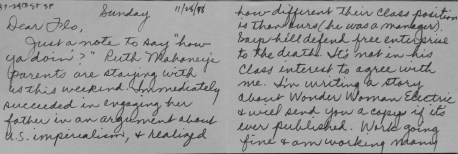 Sunday 11/26/88
Dear Flo,
Just a note to say "how
ya doin'?" Ruth Mahoney's
parents are staying with
us this weekend. Immediately
succeeded in engaging her
father in an argument about
U.S. imperialism, & realized
how different their class position
is than ours (he was a manager).
Guys hill defend free enterprise
to the death. It's not in his
class interest to agree with
me. I'm writing a story
about Wonder Woman Electric
& will send you a copy if its
ever published. Work going
fine & am working many